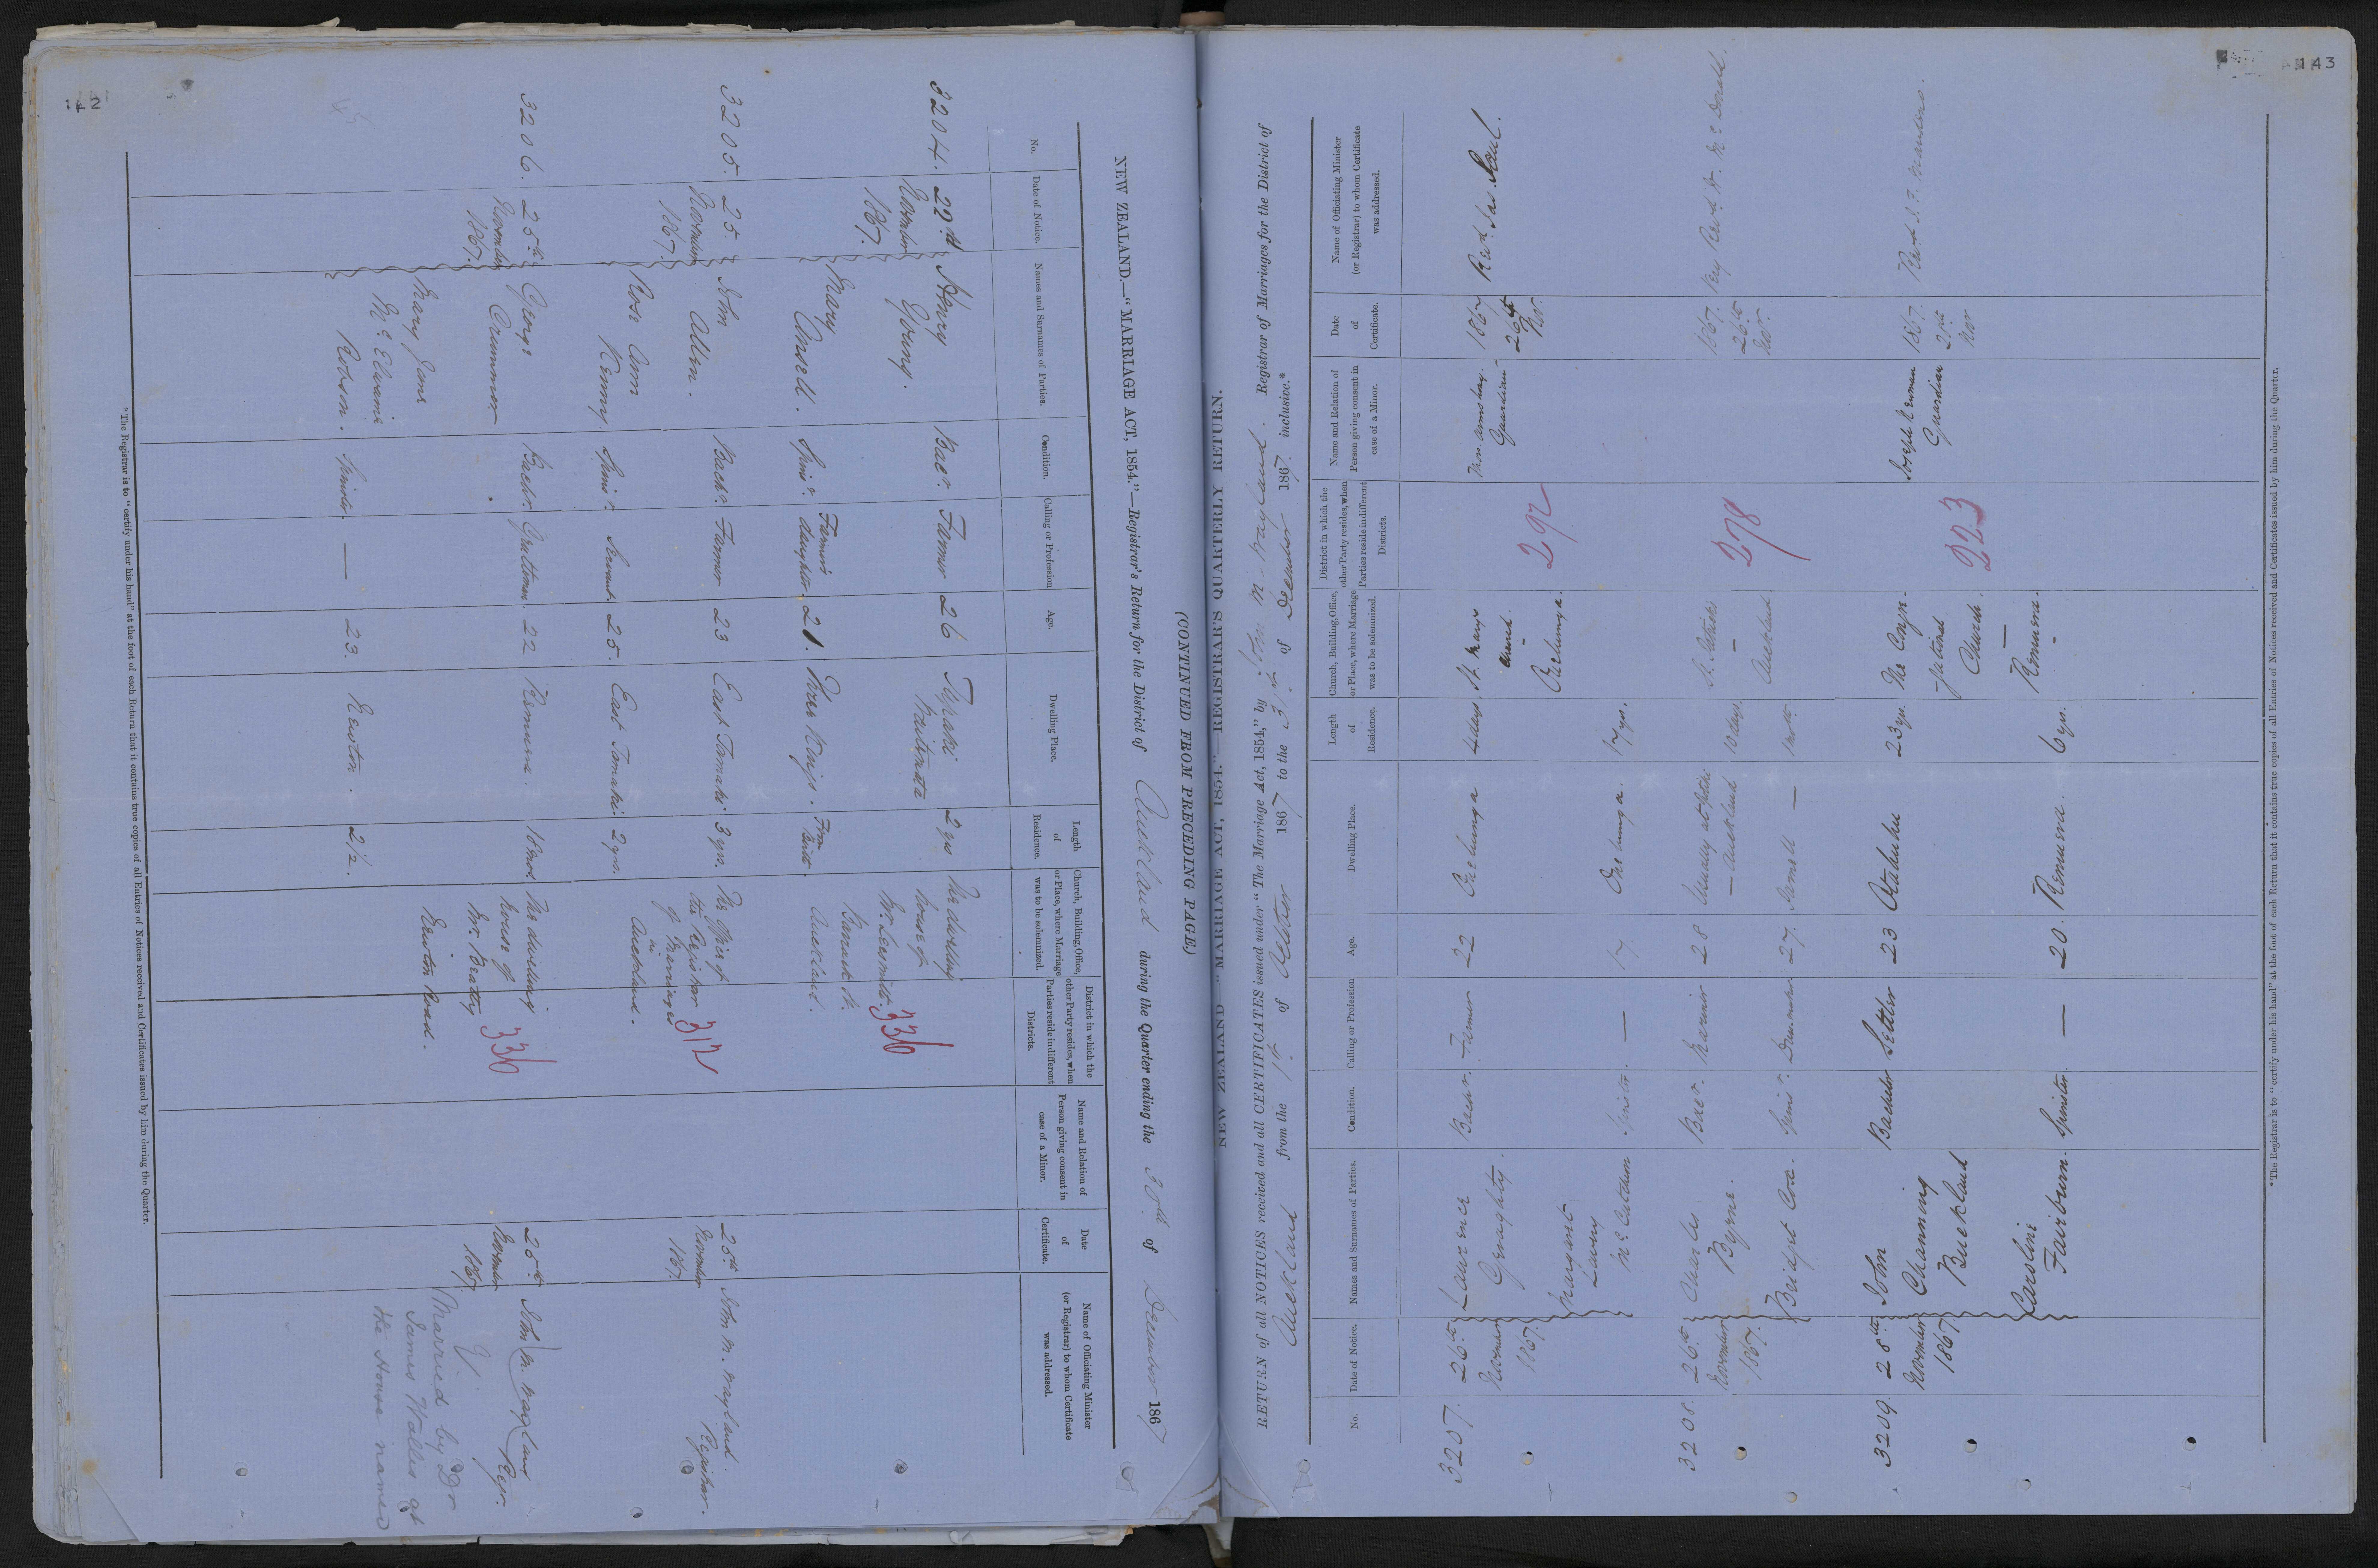 142
NEW ZEALAND.—"MARRIAGE ACT, 1854."—Registrar's Return for the District of Auckland during the Quarter ending the 30th of December 1867
No.
Date of Notice.
Names and Surnames of Parties.
Condition.
Calling or Profession
Age.
Dwelling Place.
Length of Residence.
Church, Building, Office, or Place, where Marriage was to be solemnized.
District in which the other Party resides, when Parties reside in different Districts.
Name and Relation of Person giving consent in case of a Minor.
Date of Certificate.
Name of Officiating Minister (or Registrar) to whom Certificate was addressed.
3204. 22d November 1867.
Henry Young. Bacr. Farmer 26 2 yrs
The dwelling house of
Auckland.
336
Mary Ansell. Spinr. Farmer's daughter. 21. Three Kings.
3205. 25. November 1867.
John Allen. Bachr. Farmer 23 East Tamaki. 3 yrs.
The Office of the Registrar of Marriages in Auckland.
312
25th November 1867. John M. Wayland. Registrar.
Rose Ann Kenny. Spinr. Servant. 25. East Tamaki. 2 yrs.
3206. 25th November 1867.
George Crummer Bachr. 22 Remuera. 18 mos
The dwelling house of Mr. Beatty Newton Road.
336
25th November 1867. John M. Wayland Regr.
Mary Jane McElwaine Robson. Spinster. — 23. Newton. 2½.
Married by Dr
James Wallis at
the House named
* The Registrar is to "certify under his hand" at the foot of each Return that it contains true copies of all Entries of Notices received and Certificates issued by him during the Quarter.
143
(CONTINUED FROM PRECEDING PAGE)
NEW ZEALAND.—"MARRIAGE ACT, 1854."—REGISTRAR'S QUARTERLY RETURN.
RETURN of all NOTICES received and all CERTIFICATES issued under "The Marriage Act, 1854," by John M. Wayland. Registrar of Marriages for the District of
Auckland from the 1st of October 1867 to the 31st of December 1867. inclusive.*
No.
Date of Notice.
Names and Surnames of Parties.
Condition.
Calling or Profession
Age.
Dwelling Place.
Length of Residence.
Church, Building, Office, or Place, where Marriage was to be solemnized.
District in which the other Party resides, when Parties reside in different Districts.
Name and Relation of Person giving consent in case of a Minor.
Date of Certificate.
Name of Officiating Minister (or Registrar) to whom Certificate was addressed.
3207. 26th November 1867.
Laurence Geraghty. Bachr. Farmer 22 Onehunga 4 days
St. Marys Church — Onehunga.
292
Guardian
1867 26th Nov. Revd. Jas. Paul.
Margaret Lavery McCutcheon Spinster. — 17 Onehunga. 17 yrs.
3208. 26th November 1867.
Charles Byrne. Bacr. Mariner 28 — Auckland 10 days.
St. Patricks — Auckland.
278
1867. 26th Nov. Very Revd. W. McDonald.
Bridget Cox. Spinr. Dressmaker 27. —
3209. 28th November 1867.
John Channing Buckland Bachelor Settler 23 Otahuhu 23 yrs.
The Congregational Church. — Remuera.
223
Joseph Newman Guardian
1867. Nov
Caroline Fairburn. Spinster. — 20. Remuera. 6 yrs.
* The Registrar is to "certify under his hand" at the foot of each Return that it contains true copies of all Entries of Notices received and Certificates issued by him during the Quarter.